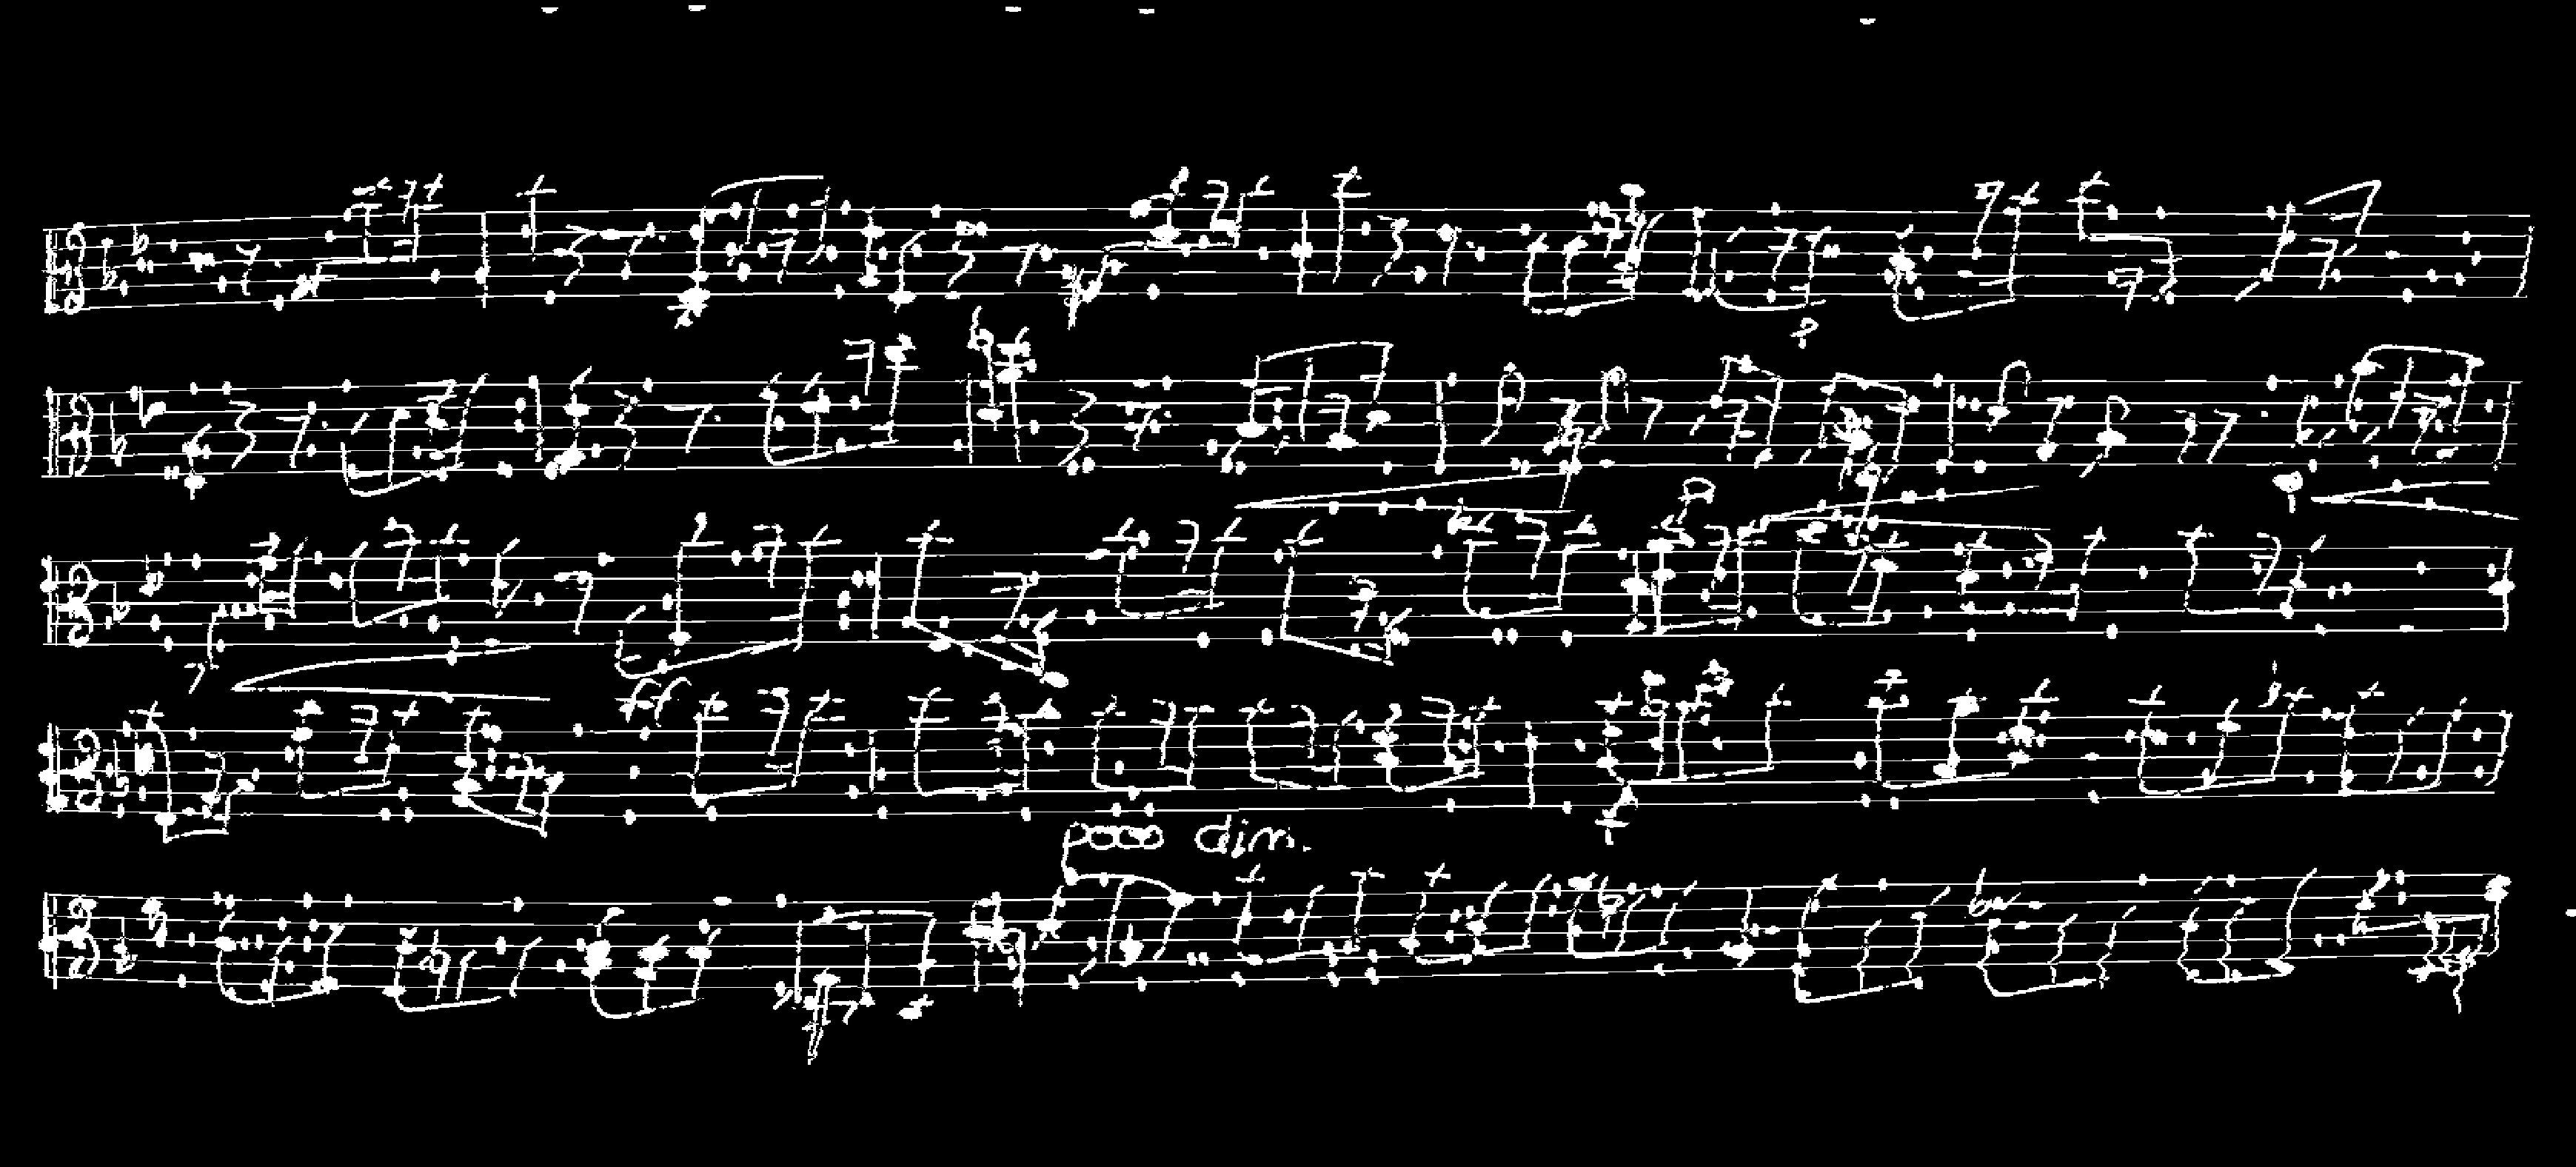 p
p
ff
poco dim.